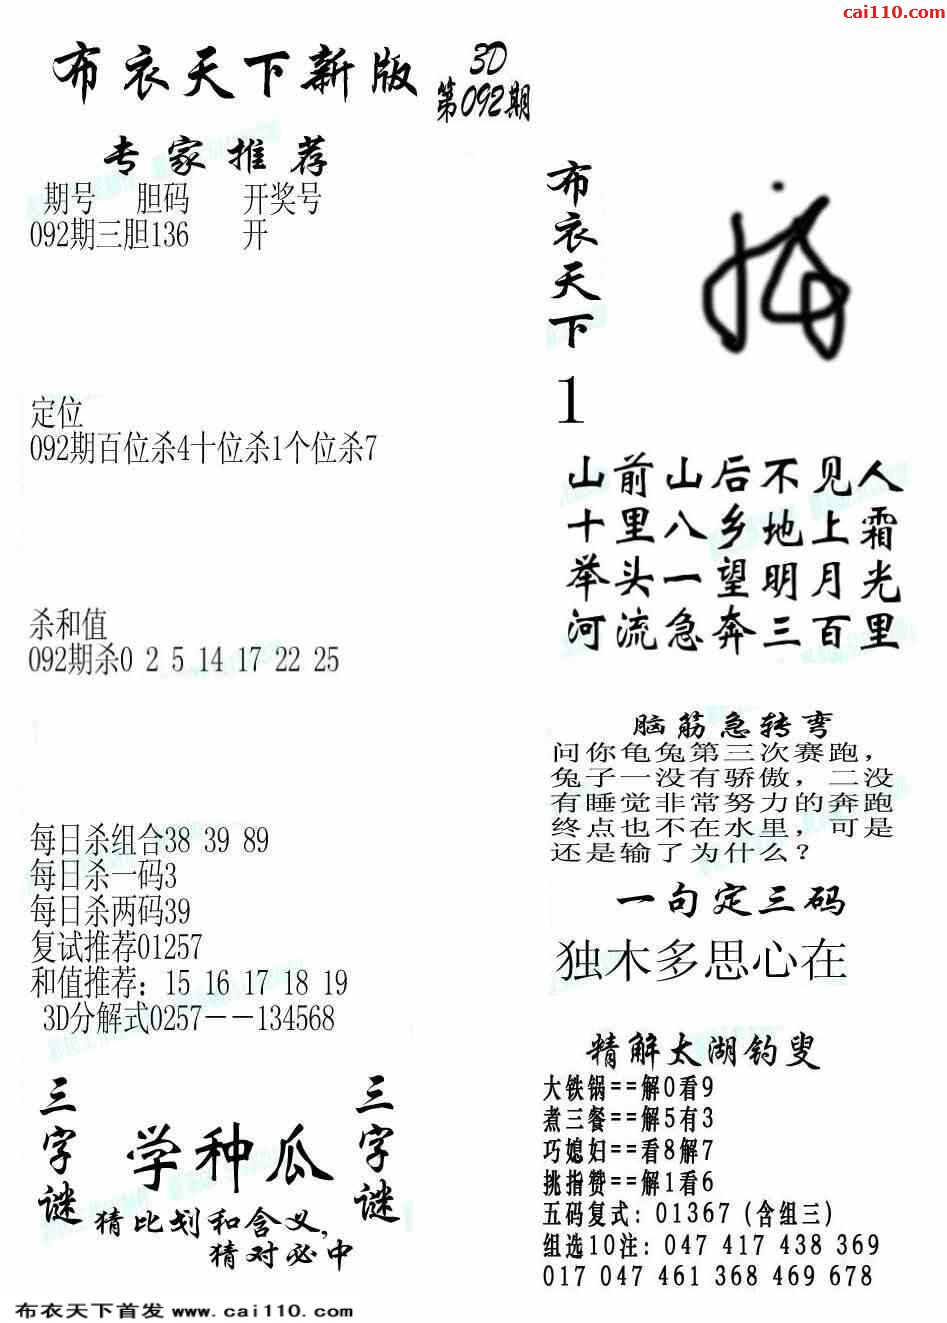 cai110.com
布衣天下新版
3D
第092期
专家推荐
期号 胆码 开奖号
092期三胆136 开
定位
092期百位杀4十位杀1个位杀7
杀和值
092期杀0 2 5 14 17 22 25
每日杀组合38 39 89
每日杀一码3
每日杀两码39
复试推荐01257
和值推荐：15 16 17 18 19
3D分解式0257－－134568
三字谜
学种瓜
三字谜
猜比划和含义,
猜对必中
布衣天下
1
山前山后不见人
十里八乡地上霜
举头一望明月光
河流急奔三百里
脑筋急转弯
问你龟兔第三次赛跑，
兔子一没有骄傲，二没
有睡觉非常努力的奔跑
终点也不在水里，可是
还是输了为什么？
一句定三码
独木多思心在
精解太湖钓叟
大铁锅==解0看9
煮三餐==解5有3
巧媳妇==看8解7
挑指赞==解1看6
五码复式: 01367 (含组三)
组选10注: 047 417 438 369
017 047 461 368 469 678
布衣天下首发 www.cai110.com